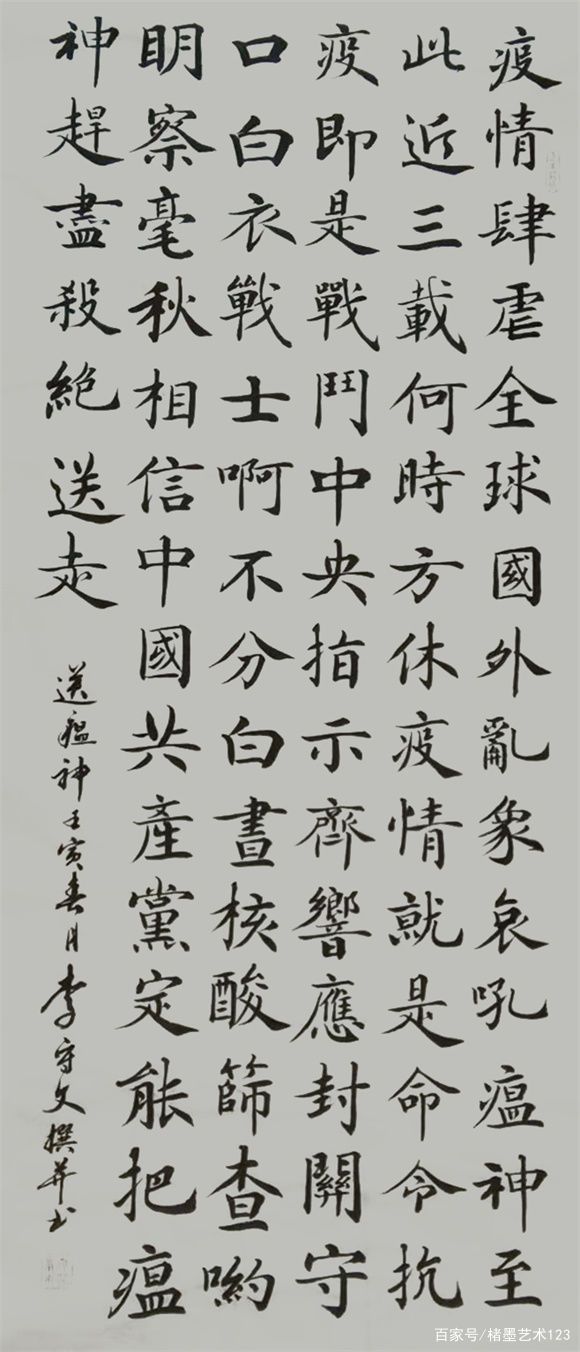 疫情肆虐全球國外亂象哀吼瘟神至
此近三載何時方休疫情就是命令抗
疫即是戰鬥中央指示齊響應封關守
口白衣戰士啊不分白晝核酸篩查喲
明察毫秋相信中國共產黨定能把瘟
神趕盡殺絕送走
送瘟神壬寅春月李守文撰並書
百家号/楮墨艺术123